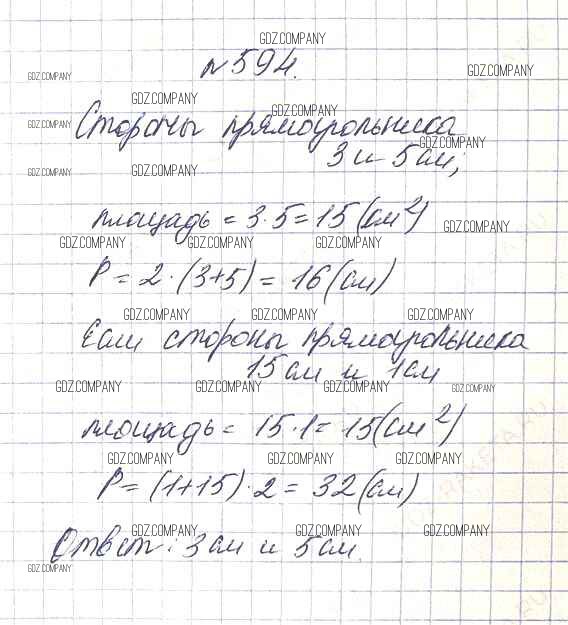 GDZ.COMPANY
№ 594.
GDZ.COMPANY GDZ.COMPANY
GDZ.COMPANY GDZ.COMPANY
GDZ.COMPANY
Стороны прямоугольника
GDZ.COMPANY
3 и 5 см;
GDZ.COMPANY GDZ.COMPANY
площадь = 3·5 = 15 (см²)
GDZ.COMPANY
GDZ.COMPANY GDZ.COMPANY GDZ.COMPANY
P = 2·(3+5) = 16 (см)
GDZ.COMPANY GDZ.COMPANY GDZ.COMPANY
Если стороны прямоугольника
15 см и 1 см
GDZ.COMPANY GDZ.COMPANY GDZ.COMPANY GDZ.COMPANY
площадь = 15·1 = 15 (см²)
GDZ.COMPANY GDZ.COMPANY GDZ.COMPANY
P = (1+15)·2 = 32 (см)
GDZ.COMPANY GDZ.COMPANY GDZ.COMPANY
Ответ: 3 см и 5 см.
GDZ.COMPANY